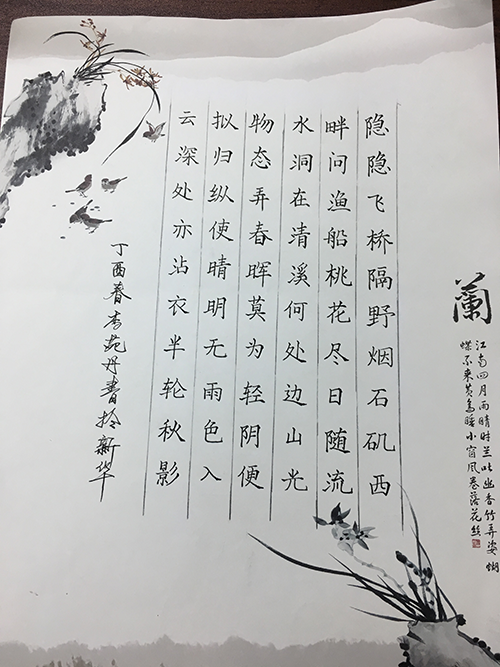 蘭
江南四月雨晴时兰吐幽香竹弄姿蝴
蝶不来黄鸟睡小窗风卷落花丝
隐隐飞桥隔野烟石矶西
畔问渔船桃花尽日随流
水洞在清溪何处边山光
物态弄春晖莫为轻阴便
拟归纵使晴明无雨色入
云深处亦沾衣半轮秋影
丁酉春 苑丹書於新华